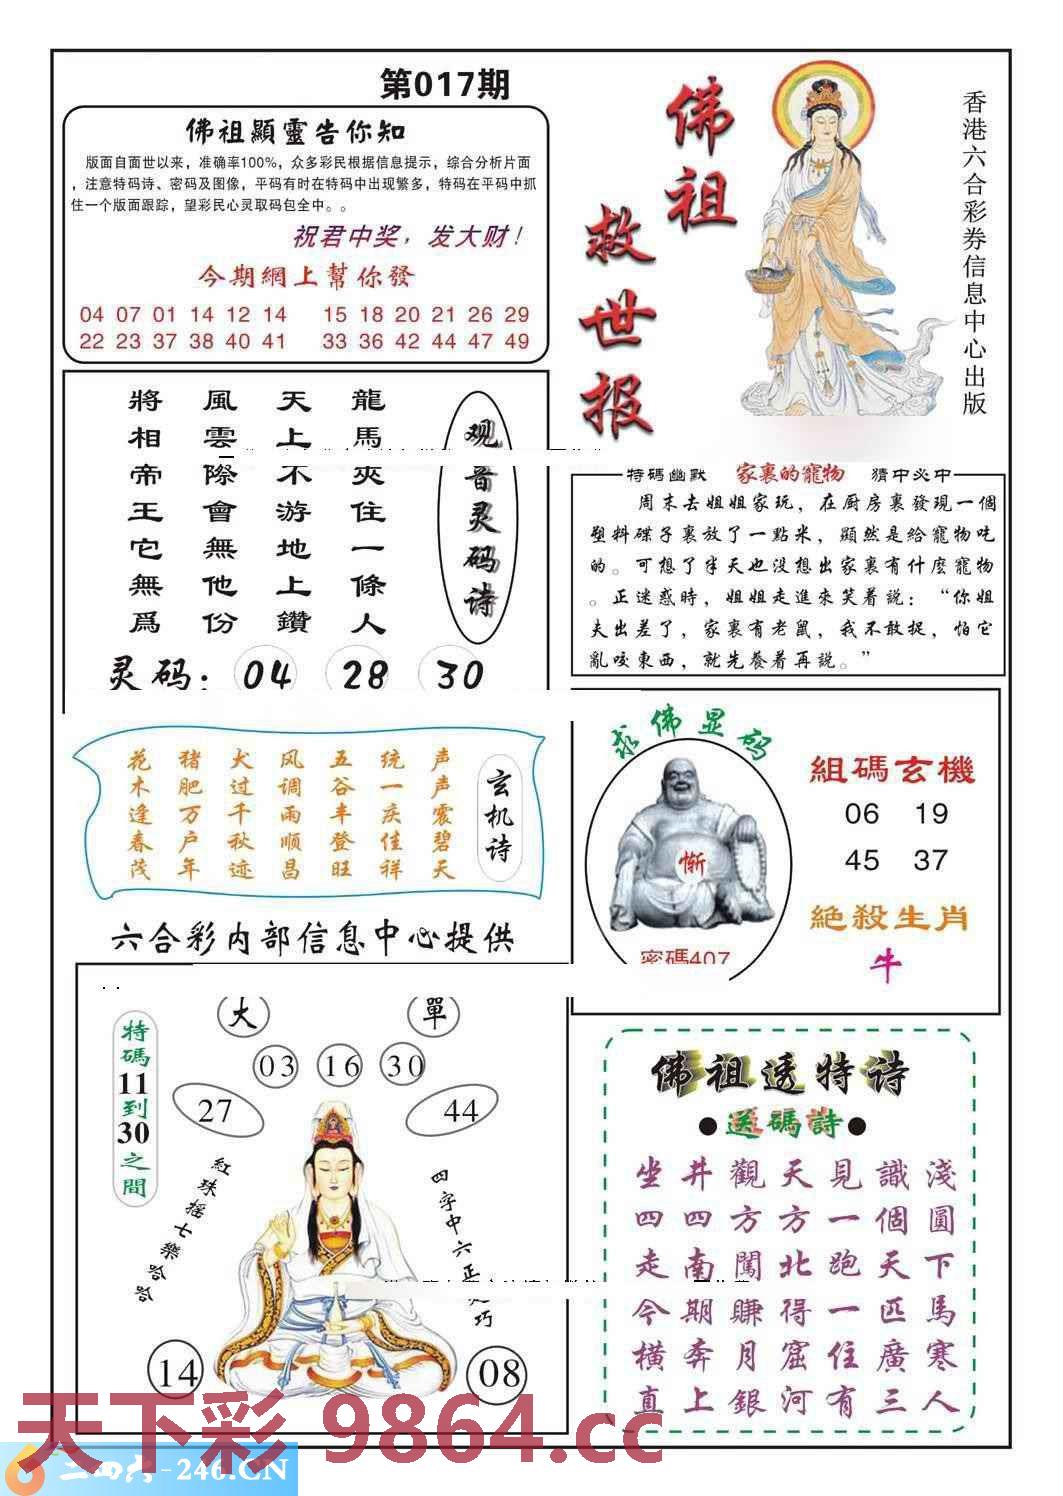 第017期
佛祖顯靈告你知
版面自面世以来，准确率100%，众多彩民根据信息提示，综合分析片面
，注意特码诗、密码及图像，平码有时在特码中出现繁多，特码在平码中抓
住一个版面跟踪，望彩民心灵取码包全中。。
祝君中奖，发大财！
今期網上幫你發
04 07 01 14 12 14 15 18 20 21 26 29
22 23 37 38 40 41 33 36 42 44 47 49
佛祖
救世报
香港六合彩券信息中心出版
观音灵码诗
龍馬夾住一條人
天上不游地上鑽
風雲際會無他份
將相帝王它無爲
灵码：04 28 30
特碼幽默 家裏的寵物 猜中必中
周末去姐姐家玩，在厨房裏發現一個
塑料碟子裏放了一點米，顯然是給寵物吃
的。可想了半天也没想出家裏有什麼寵物
。正迷惑時，姐姐走進來笑着説：“你姐
夫出差了，家裏有老鼠，我不敢捉，怕它
亂咬東西，就先養着再説。”
玄机诗
声声震碧天
统一庆佳祥
五谷丰登旺
风调雨顺昌
犬过千秋迹
猪肥万户年
花木逢春茂
六合彩内部信息中心提供
求佛显码
惭
密碼407
組碼玄機
06 19
45 37
絶殺生肖
牛
特碼11到30之間
大 單
03 16 30
27 44
紅珠摇七樂哈哈
四字中六正
巧
14 08
佛祖透特诗
●送碼詩●
坐井觀天見識淺
四四方方一個圓
走南闖北跑天下
今期賺得一匹馬
横奔月窟住廣寒
直上銀河有三人
天下彩 9864.cc
二四六-246.CN